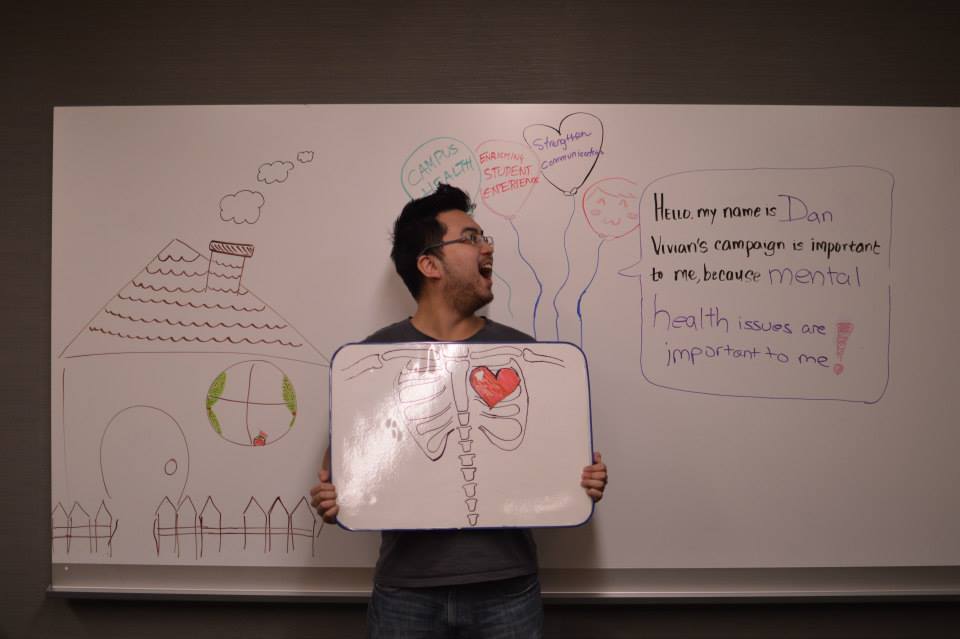 CAMPUS
HEALTH
ENRICHING
STUDENT
EXPERIENCE
Strengthen
Communication
HELLO, my name is Dan
Vivian's campaign is important
to me, because mental
health issues are
important to me!